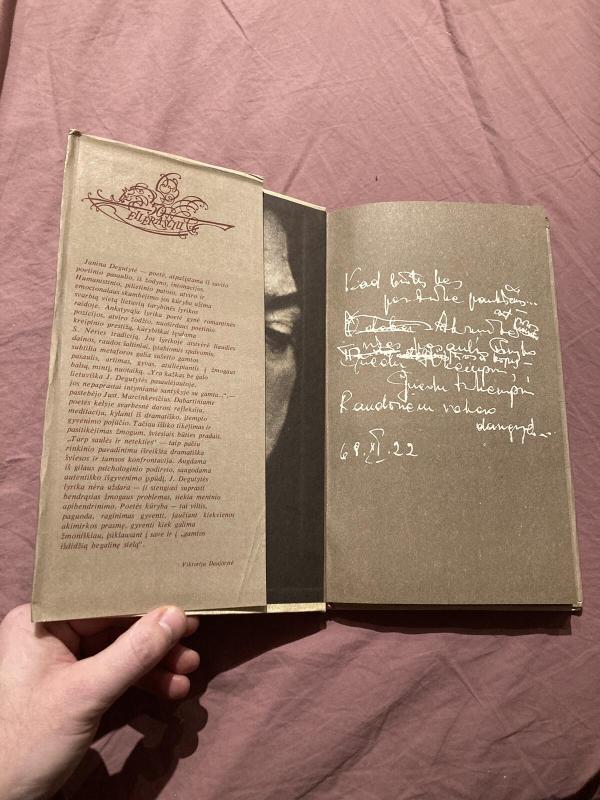 EILĖRAŠČIU
Janina Degutytė — poetė, atpažįstama iš savito
poetinio pasaulio, iš žodyno, intonacijos.
Humanistinio, pilietinio patoso, atviro ir
emocionalaus skambėjimo jos kūryba užima
svarbią vietą lietuvių tarybinės lyrikos
raidoje. Ankstyvąja lyrika poetė gynė romantinės
pozicijos, atviro žodžio, nuoširdaus poetinio
kreipinio prestižą, kūrybiškai tęsdama
S. Nėries tradiciją. Jos lyrikoje atsivėrė liaudies
dainos, raudos šaltiniai, ypatumais
subtilia metaforos galia sušvito gamtos
pasaulis, artimas, gyvas, atsiliepiantis į žmogaus
balsą, mintį, nuotaiką. „Yra kažkas be galo
lietuviška J. Degutytės pasaulėjautoje,
jos nepaprastai intymiame santykyje su gamta...“, —
pastebėjo Just. Marcinkevičius. Dabartiniame
poetės kelyje svarbesnė darosi refleksija,
meditacija, kylanti iš dramatiško, įtempto
gyvenimo pojūčio. Tačiau išliko tikėjimas ir
pasitikėjimas žmogum, šviesiais būties pradais.
„Tarp saulės ir netekties“ — taip pačiu
rinkinio pavadinimu išreikšta dramatiška
šviesos ir tamsos konfrontacija. Augdama
iš gilaus psichologinio podirvio, saugodama
autentiško išgyvenimo įspūdį, J. Degutytės
lyrika nėra uždara — ji stengiasi suprasti
bendrąsias žmogaus problemas, siekia meninio
apibendrinimo. Poetės kūryba — tai viltis,
paguoda, raginimas gyventi, jaučiant kiekvienos
akimirkos prasmę, gyventi kiek galima
žmoniškiau, įsiklausant į save ir į „gamtos
išdidžią begalinę sielą“.
Viktorija Daujotytė
Kad būtų bes
Raudonam vakaro
danguj...
68.XI.22